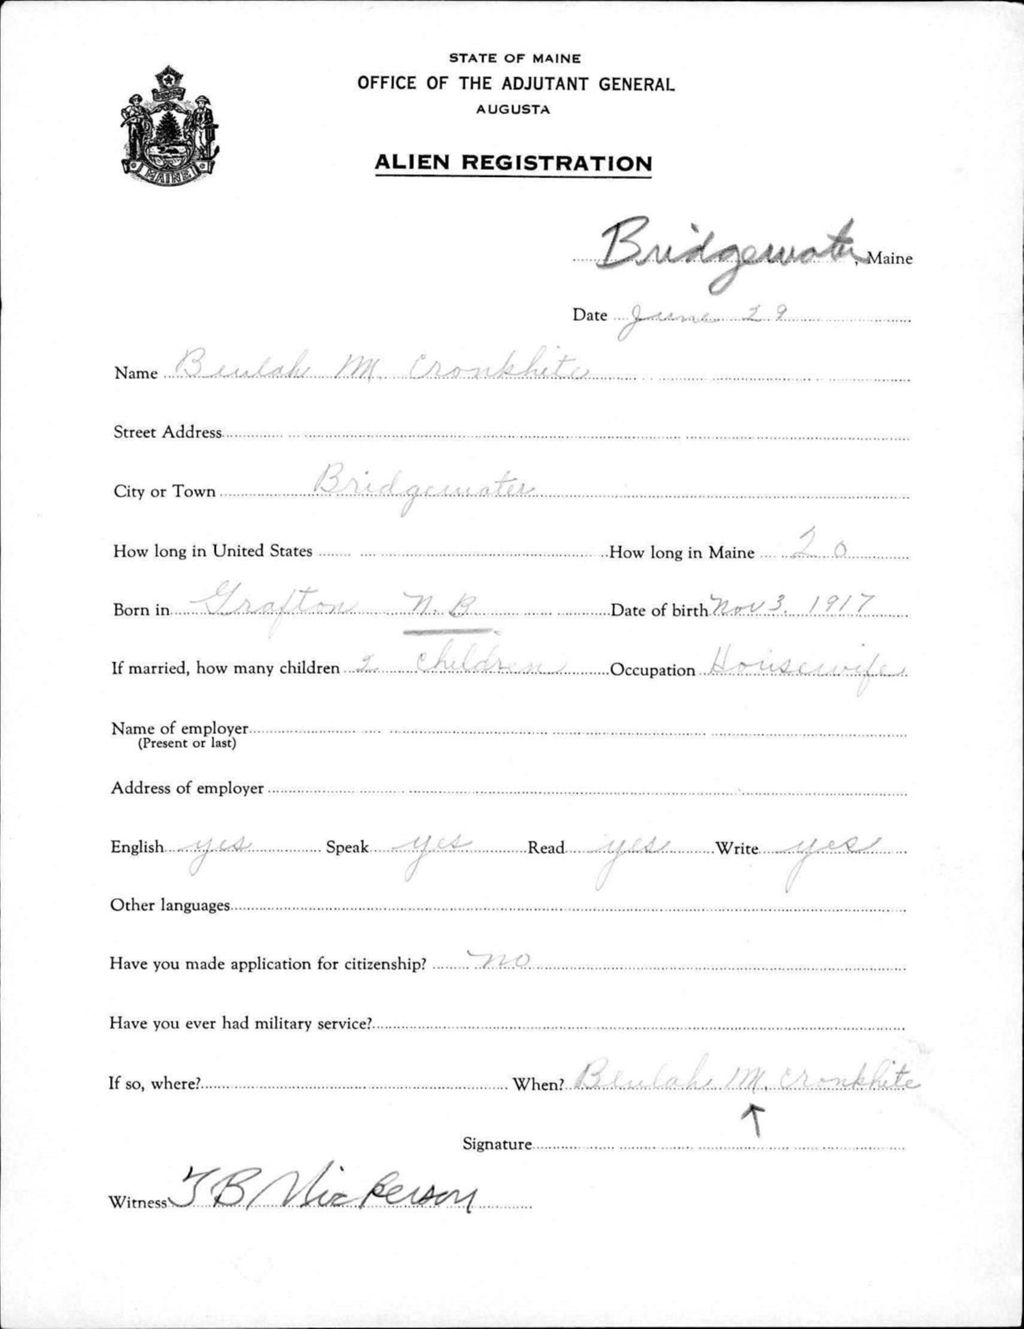 STATE OF MAINE
OFFICE OF THE ADJUTANT GENERAL
AUGUSTA
MAINE
ALIEN REGISTRATION
Bridgewater, Maine
Date June 29
Name Beulah M. Cronkhite
Street Address
City or Town Bridgewater
How long in United States How long in Maine 20
Born in Grafton N.B. Date of birth Nov 3. 1917
If married, how many children 2 children Occupation Housewife
Name of employer
(Present or last)
Address of employer
English yes Speak yes Read yes Write yes
Other languages
Have you made application for citizenship? no
Have you ever had military service?
If so, where? When? Beulah M. Cronkhite
Signature
Witness T B Nickerson